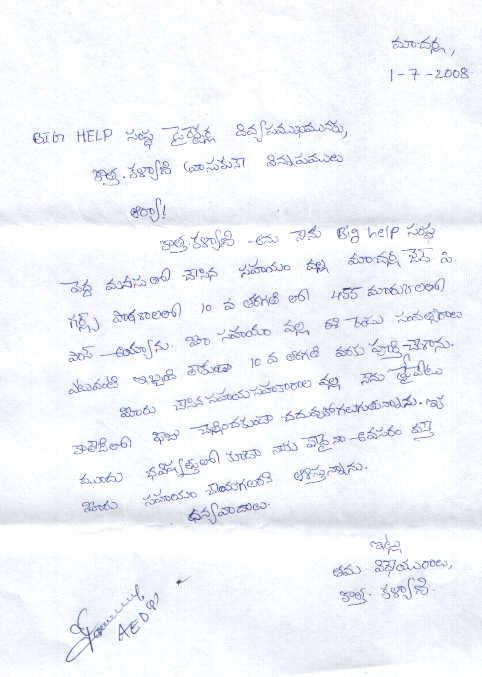 మాచర్ల,
1-7-2008
BIG HELP సంస్థ డైరెక్టర్ల దివ్యసముఖమునకు,
కొత్త. కళ్యాణి వ్రాసుకునే విన్నపములు
ఆర్యా!
కొత్త కళ్యాణి అను నేను Big help సంస్థ
పెద్ద మనసుతో చేసిన సహాయం వల్ల మాచర్ల జెడ్.పి.
గర్ల్స్ పాఠశాలలో 10 వ తరగతి లో 455 మార్కులతో
పాస్ అయ్యాను. మీ సహాయం వల్ల ఈ రెండు సంవత్సరాలు
ఎటువంటి ఇబ్బంది లేకుండా 10 వ తరగతి వరకు పూర్తి చేశాను.
మీరు చేసిన సహాయసహకారాల వల్ల నేను ప్రైవేటు
కాలేజీలో ఫీజు చెల్లించకుండా చదువుకోగలుగుతున్నాను. ఇక
ముందు భవిష్యత్తులో కూడా నాకు ఏదైనా అవసరం వస్తే
మీరు సహాయం చేయగలరని ఆశిస్తున్నాను.
ధన్యవాదాలు.
ఇట్లు
తమ విధేయురాలు,
కొత్త. కళ్యాణి.